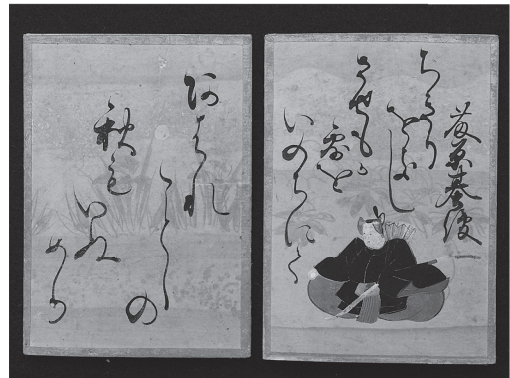 藤原基俊
ちきり
をきし
させもか
露を
いのちにて
あはれ
ことしの
秋も
いぬ
めり